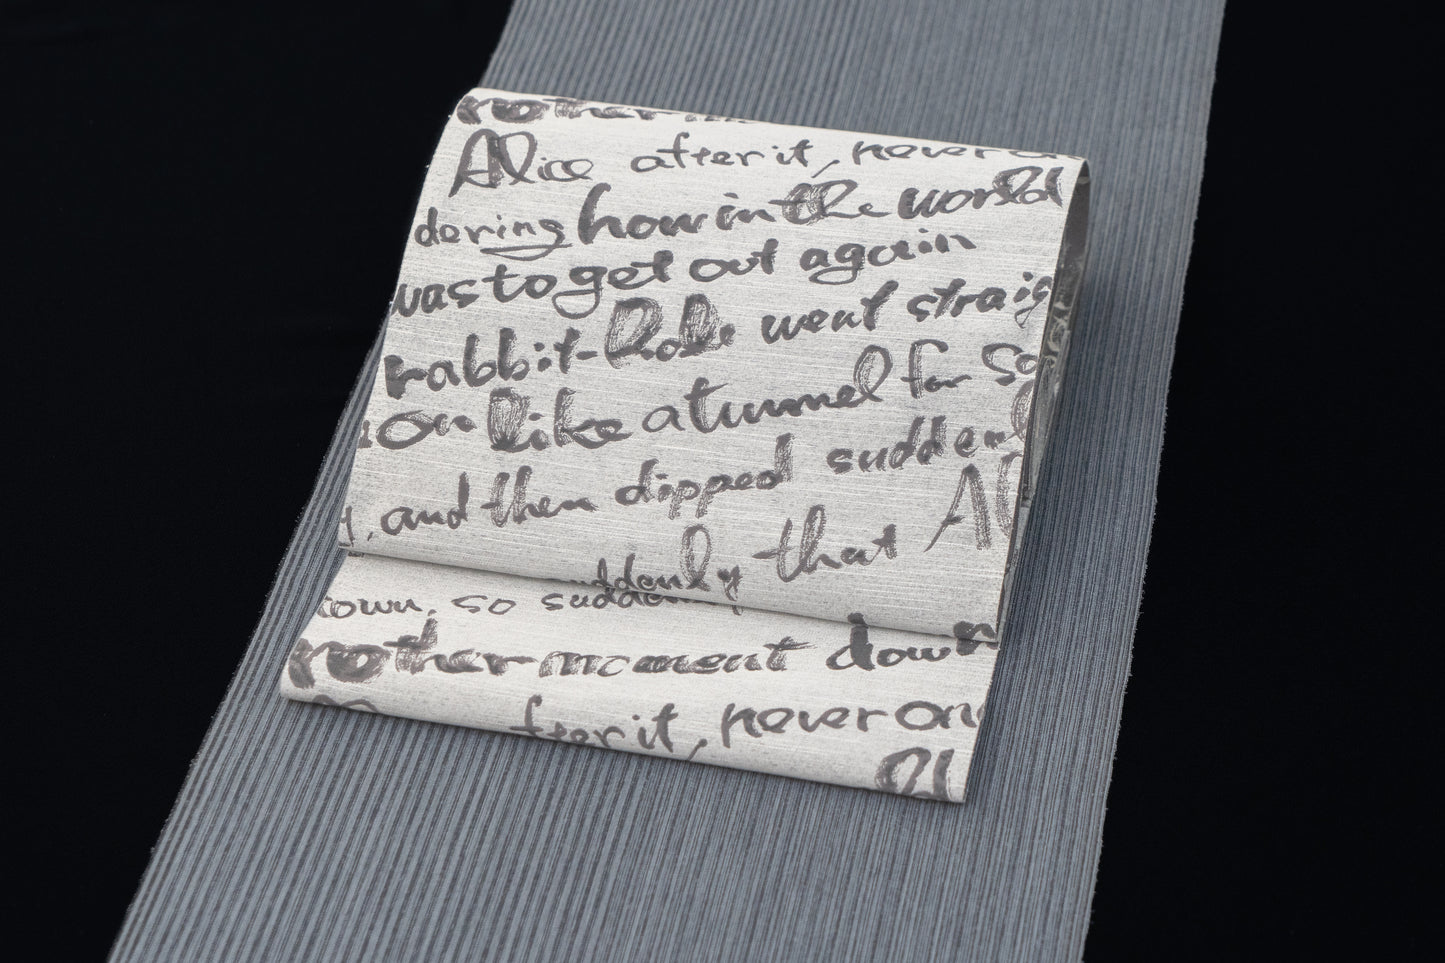 nother
Alice after it, never
dering how in the world
was to get out again
rabbit-hole went straig
on like a tunnel for so
, and then dipped sudden
suddenly that Al
down, so sudden
nother moment down
fter it, never on